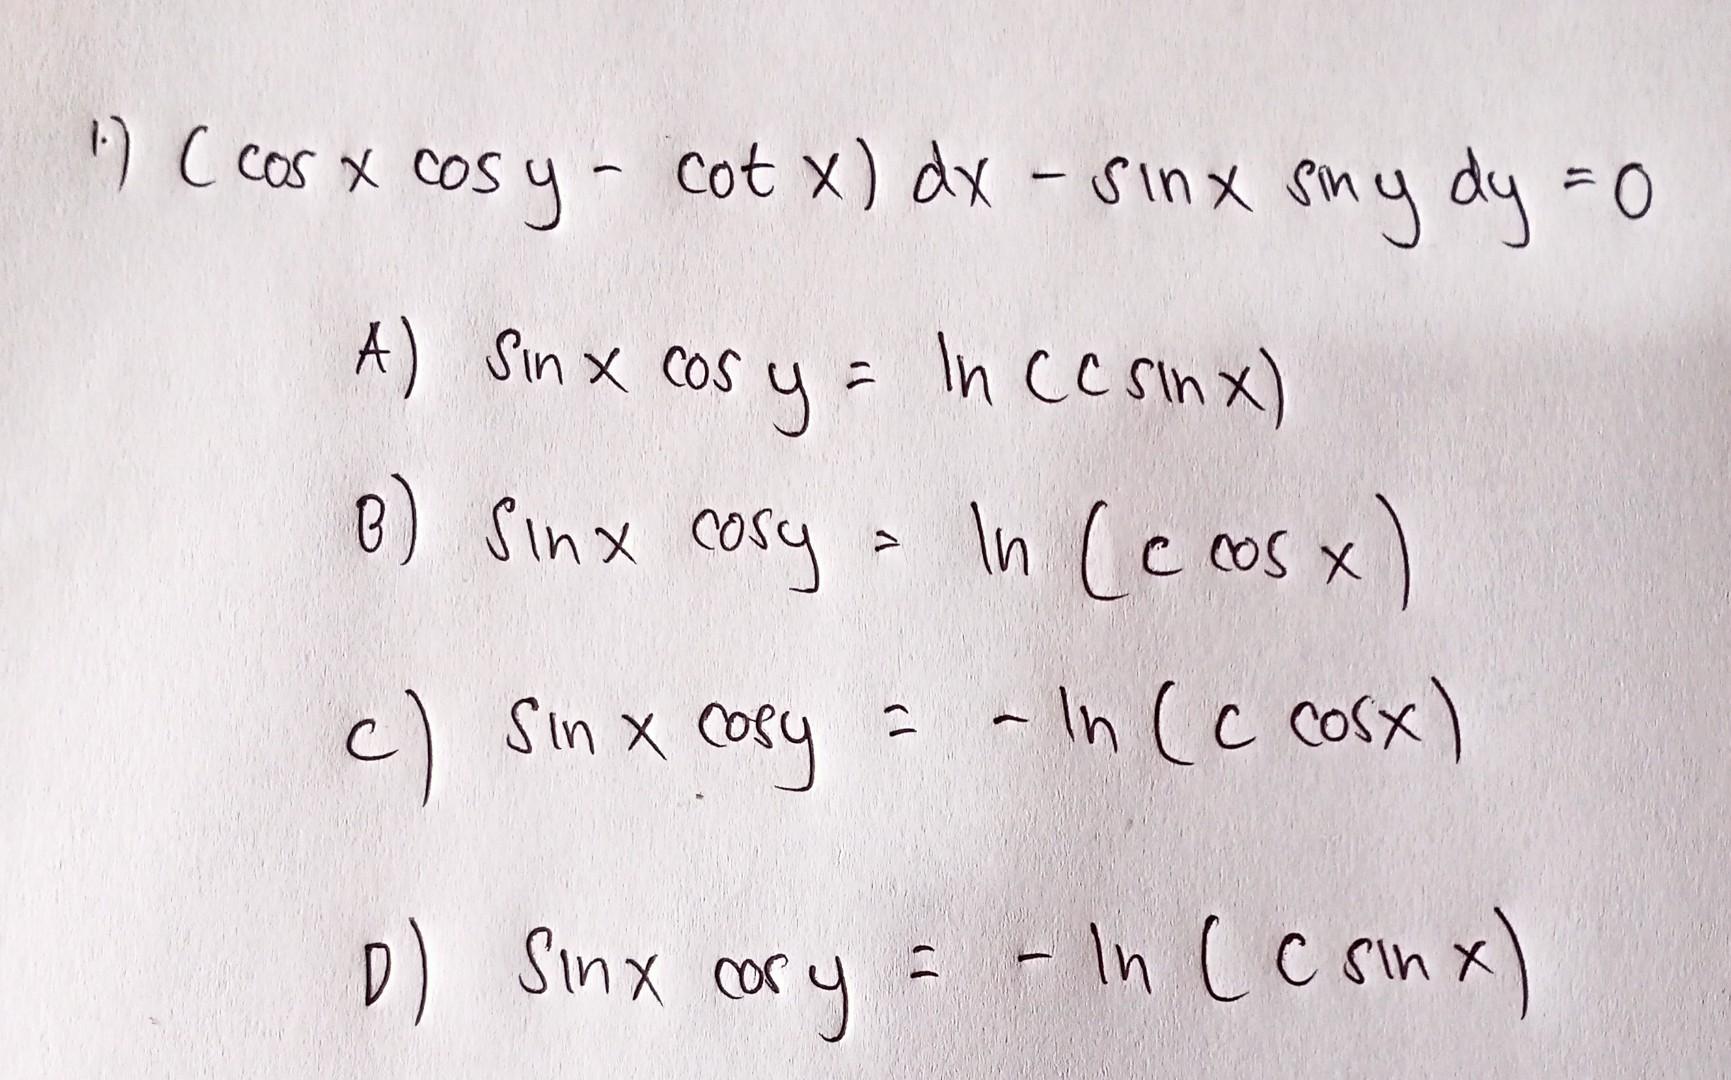 1.) (cos x cos y - cot x) dx - sin x sin y dy = 0
A) sin x cos y = ln (c sin x)
B) sin x cos y = ln (c cos x)
C) sin x cos y = - ln (c cos x)
D) sin x cos y = - ln (c sin x)